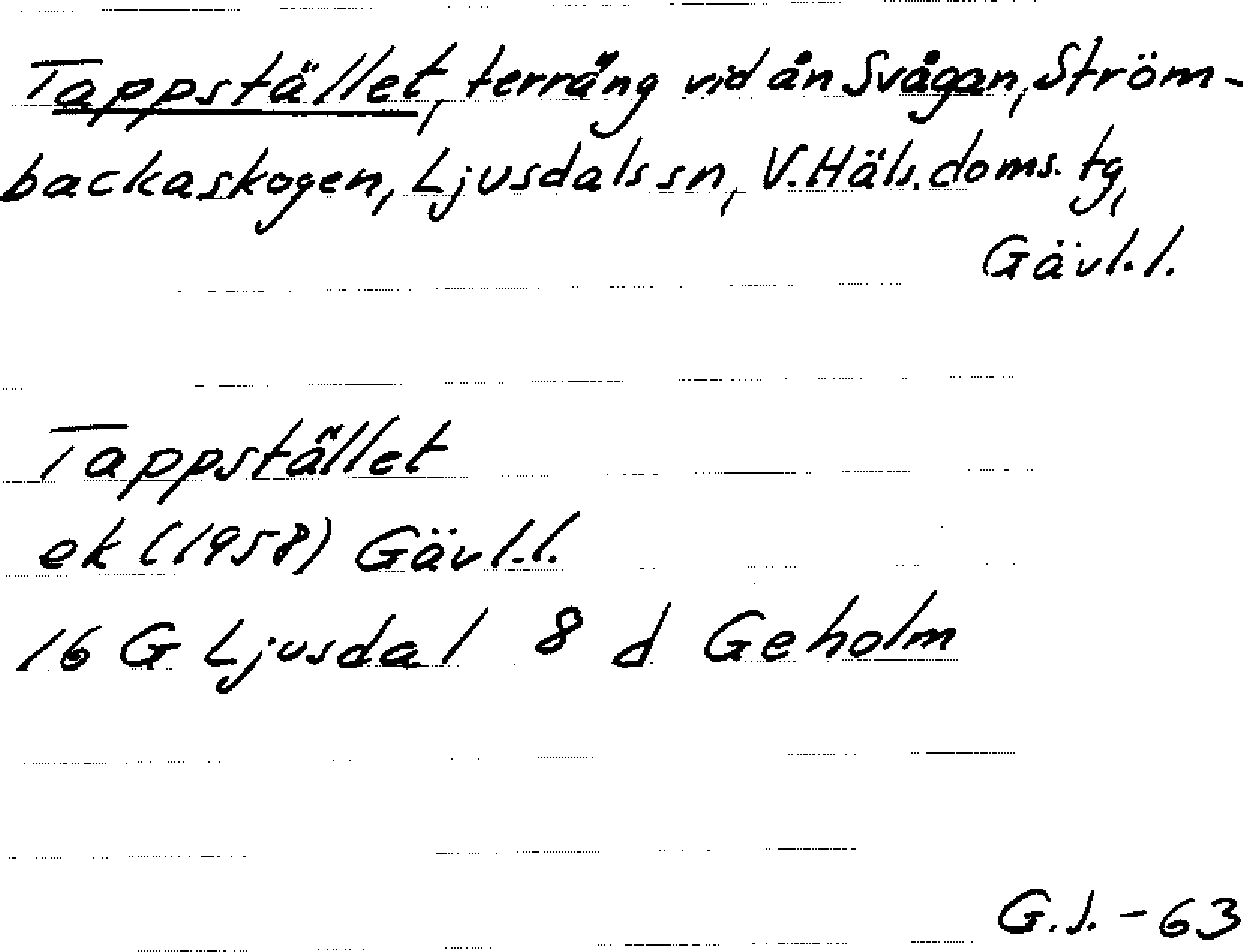 Tappstället, terräng vid ån Svågan, Ström-
backaskogen, Ljusdals sn, V.Häls.doms.tg,
Gävl.l.
Tappstället
ek (1958) Gävl.l.
16 G Ljusdal 8 d Geholm
G.J.-63